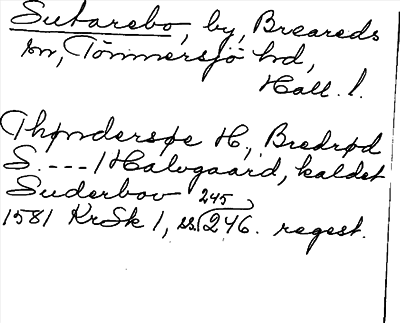 Sutarebo, by, Breareds
sn, Tönnersjö hd,
Hall. l.
Thøndersøe H., Bredrød
S. --- 1 Halvgaard, kaldet
Suderbov
245
1581 KrSk 1, ss. 246. regest.